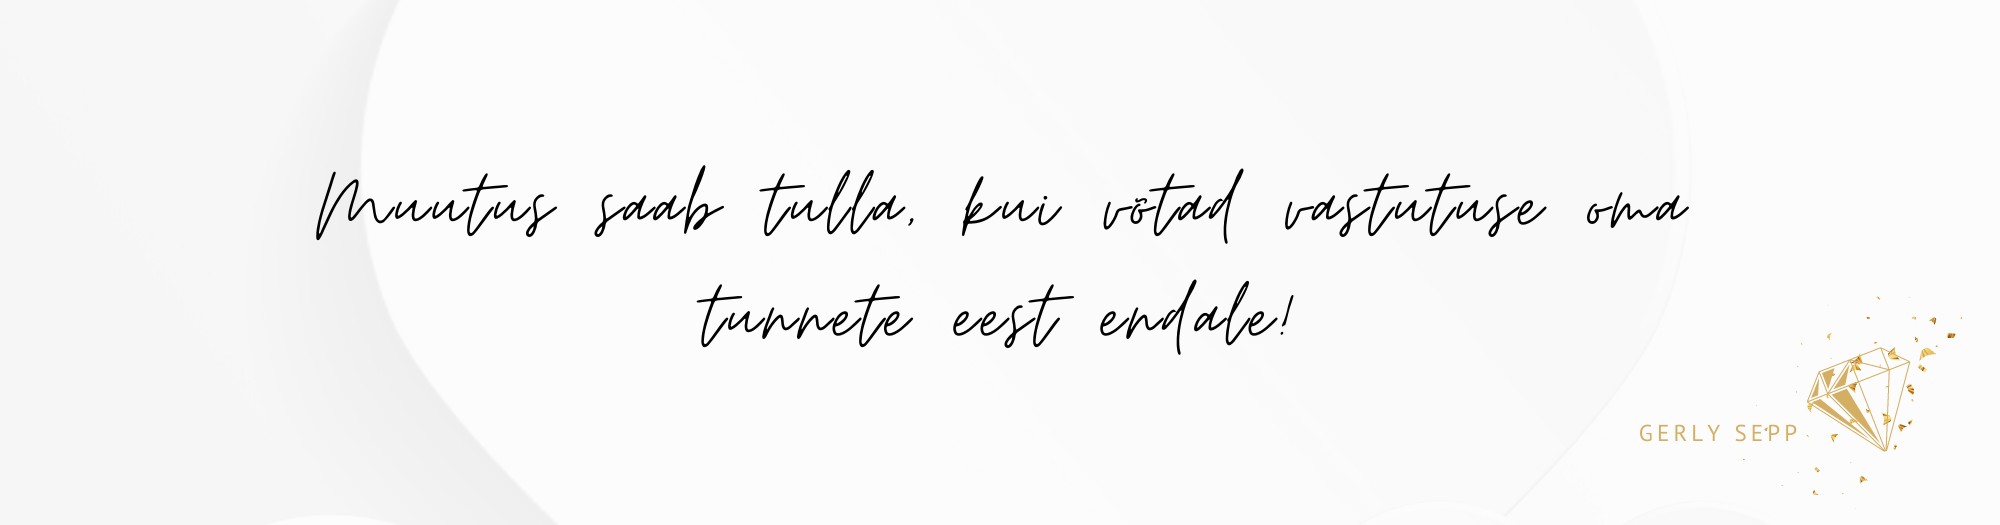 Muutus saab tulla, kui võtad vastutuse oma
tunnete eest endale!
GERLY SEPP